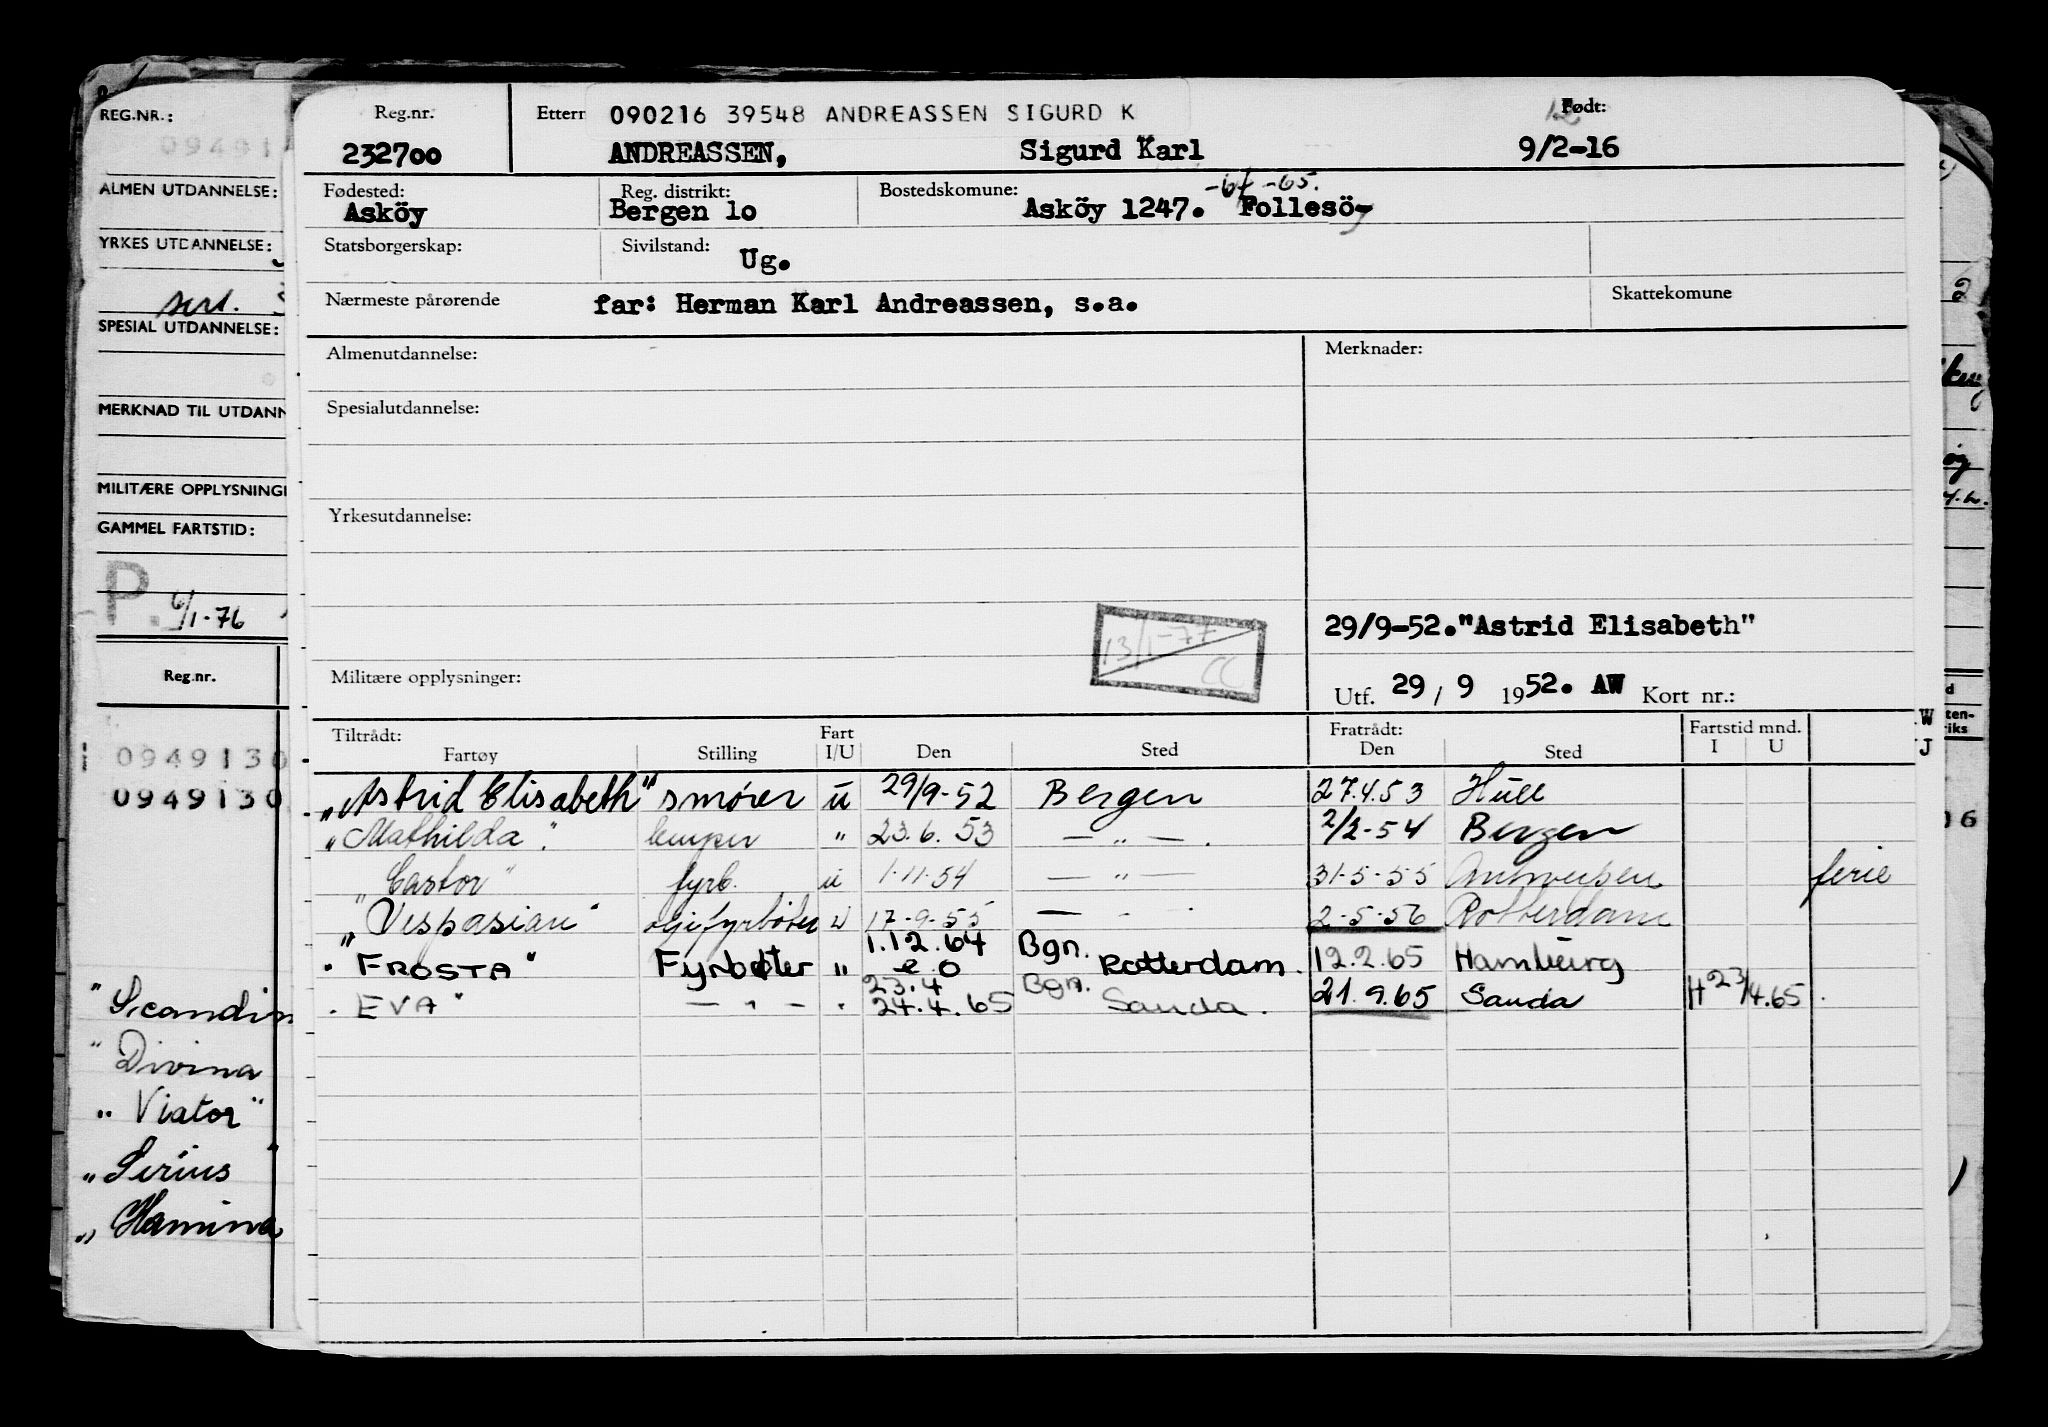 REG.NR.:
ALMEN UTDANNELSE:
YRKES UTDANNELSE:
SPESIAL UTDANNELSE:
MERKNAD TIL UTDANN
MILITÆRE OPPLYSNINGE
GAMMEL FARTSTID:
P. 6/1-76
Reg.nr.
0949130
0949130
"Scandin
"Divina
"Viator"
"Sirius"
"Hamina
Reg.nr. Etterr 090216 39548 ANDREASSEN SIGURD K Født:
232700 ANDREASSEN, Sigurd Karl 9/2-16
Fødested: Reg. distrikt: Bostedskommune: -64 -65.
Asköy Bergen lo Asköy 1247. Follesö-
Statsborgerskap: Sivilstand: Ug.
Nærmeste pårørende far: Herman Karl Andreassen, s.a. Skattekomune
Almenutdannelse: Merknader:
Spesialutdannelse:
Yrkesutdannelse:
13/1-77 CC
29/9-52."Astrid Elisabeth"
Militære opplysninger: Utf. 29 / 9 1952. AW Kort nr.:
Tiltrådt: Fart Fratrådt: Fartstid mnd.
Fartøy Stilling I/U Den Sted Den Sted I U
"Astrid Elisabeth" smører u 29/9-52 Bergen 27.4.53 Hull
"Mathilda". lemper " 23.6.53 — " —. 2/2-54 Bergen
"Castor" fyrb. u 1-11-54 — " — 31-5-55 Antwerpen ferie
"Vespasian" oljefyrbøter u 17-9-55 — " — 2-5-56 Rotterdam
" FROSTA" Fyrbøter " 1.12.64 Bgn. Rotterdam. 12.2.65 Hamburg
" EVA" — " — " 23.4 24.4.65 Bgn. Sauda. 21.9.65 Sauda H 23/4.65